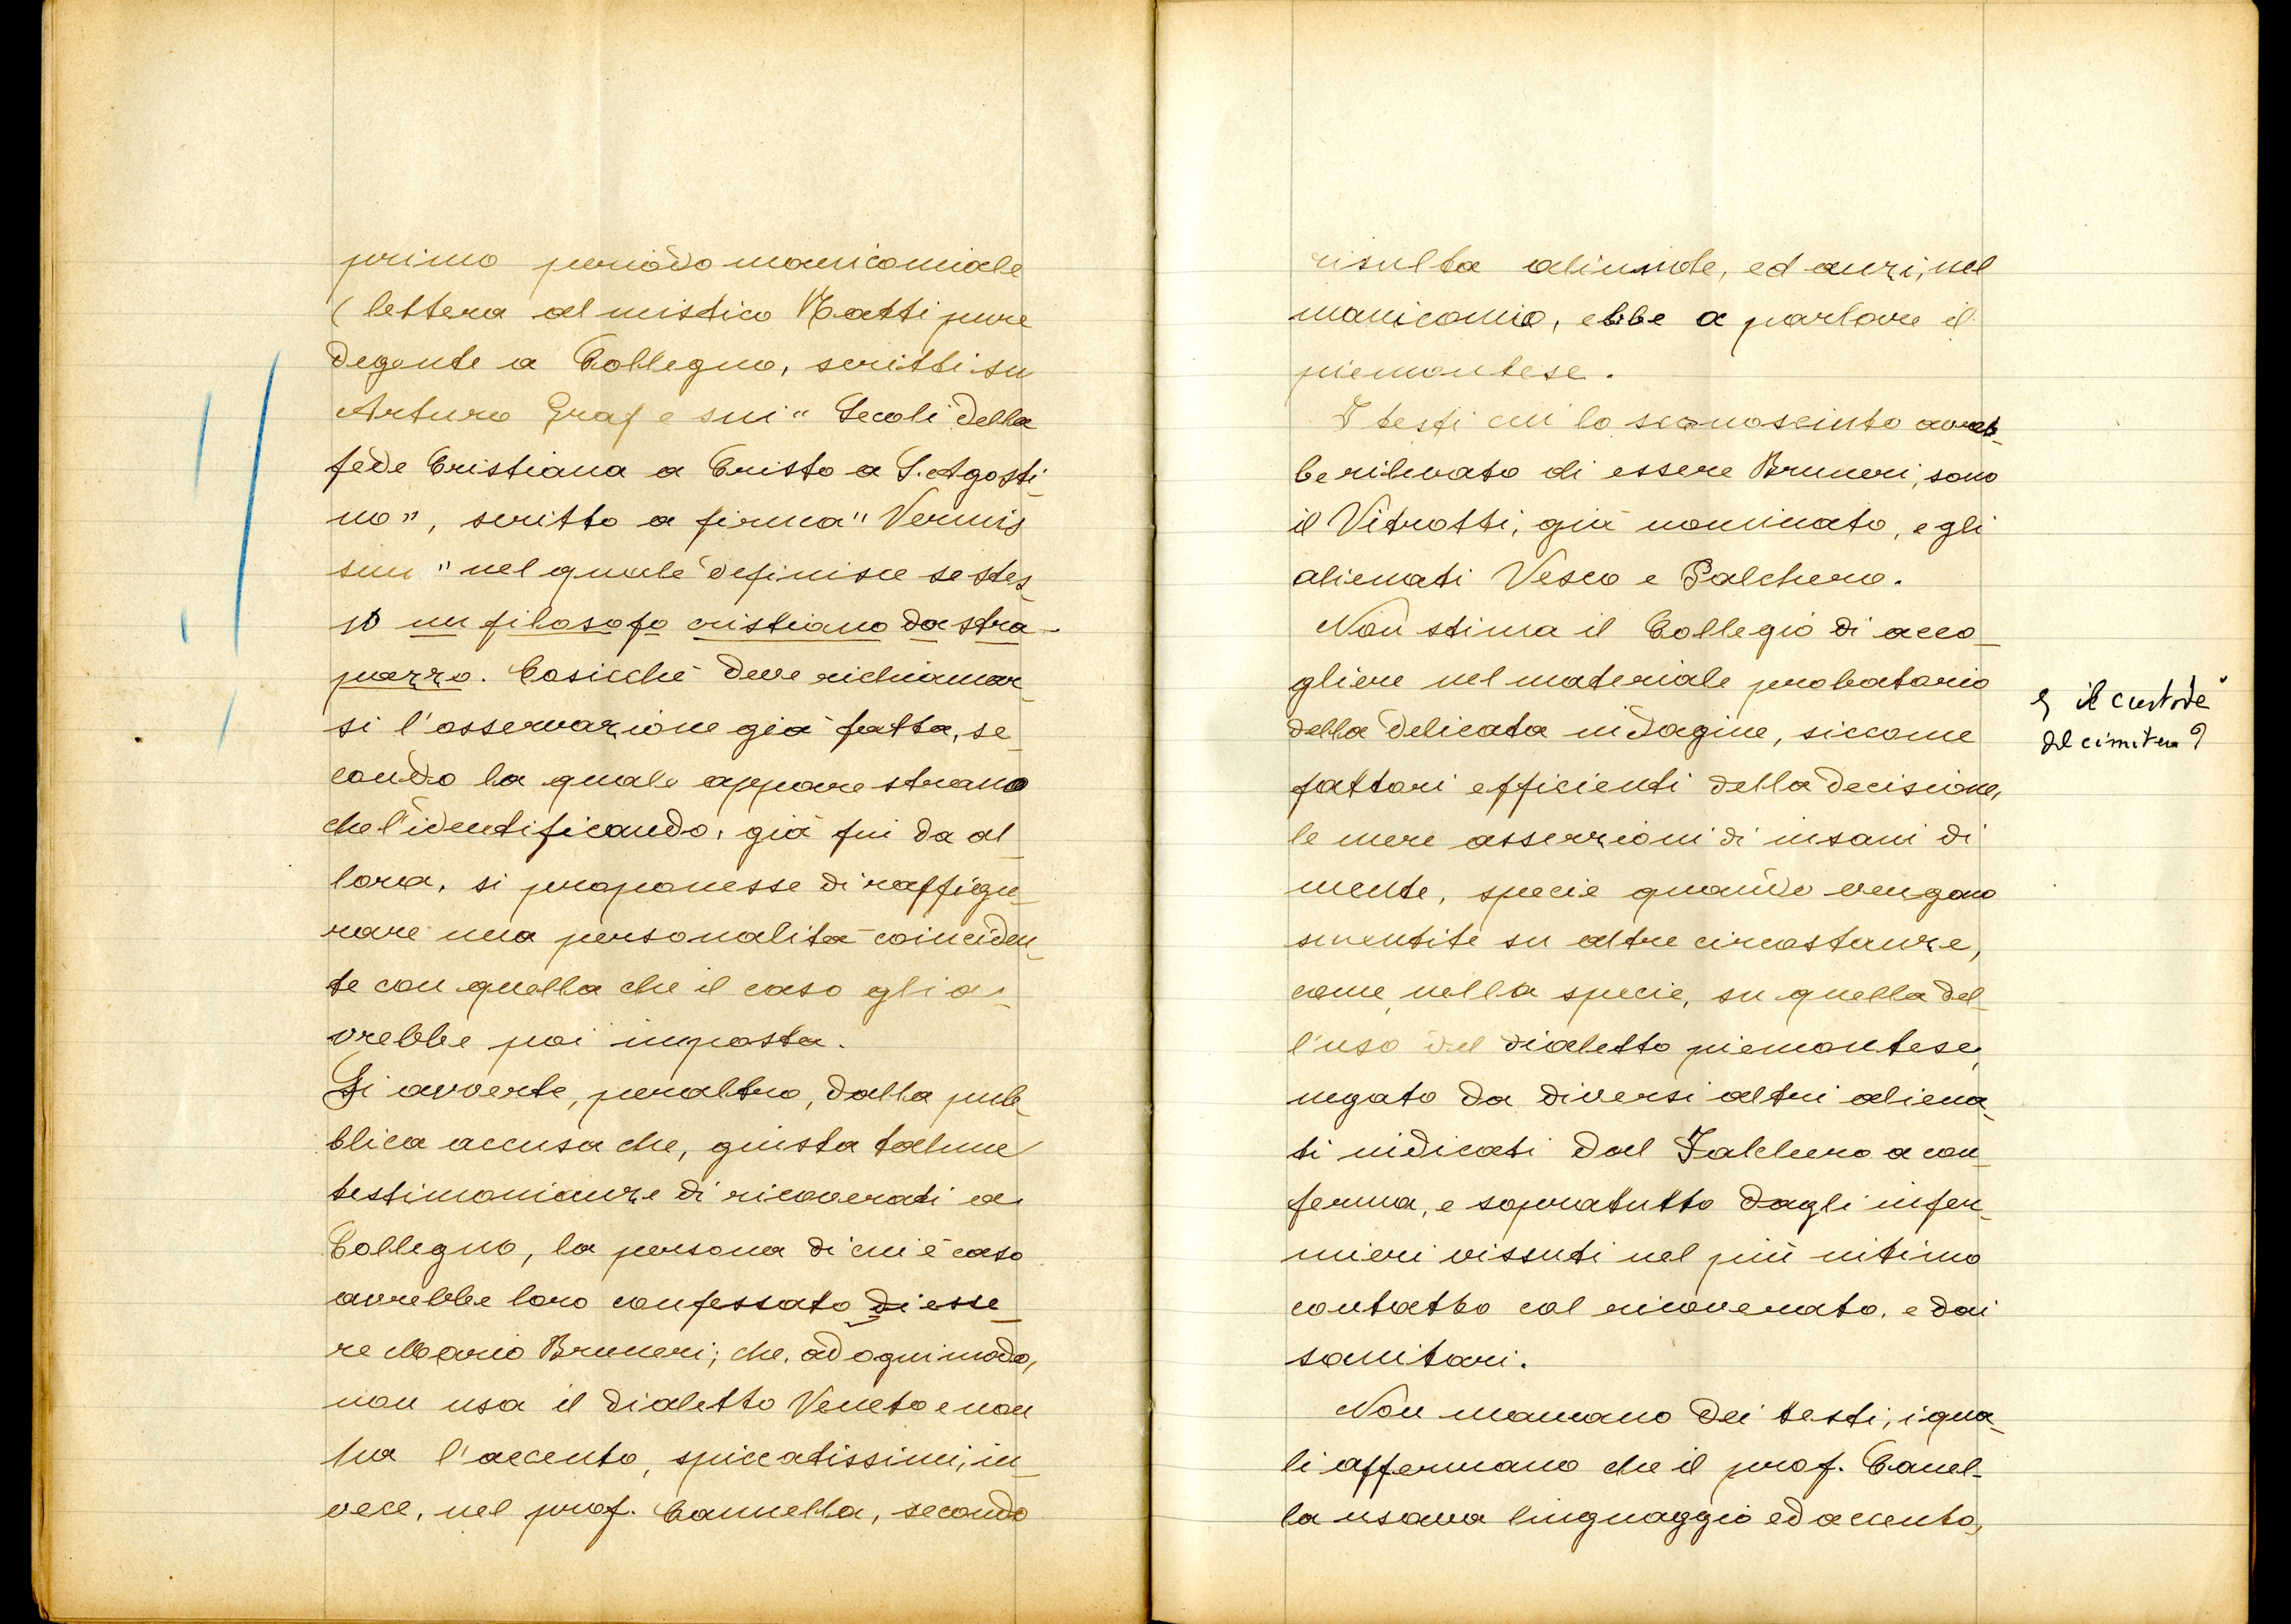 primo periodo manicomiale
(lettera al mistico Matti pure
degente a Collegno, scritti su
Arturo Graf e sui "Secoli della
fede Cristiana a Cristo a S. Agosti-
no", scritto a firma "Vermis
sum" nel quale definisce se stes-
so un filosofo cristiano da stra-
pazzo. Cosicché deve richiamar-
si l'osservazione già fatta, se-
condo la quale appare strano
che l'identificando, già fin da al-
lora, si proponesse di raffigu-
rare una personalità coinciden-
te con quella che il caso gli a-
vrebbe poi imposta.
Si avverte, peraltro, dalla pub-
blica accusa che, giusta talune
testimonianze di ricoverati a
Collegno, la persona di cui è caso
avrebbe loro confessato di esse-
re Mario Bruneri; che, ad ogni modo,
non usa il dialetto Veneto e non
ha l'accento, spiccatissimi, in-
vece, nel prof. Cannella, secondo
risulta aliunde, ed anzi, nel
manicomio, ebbe a parlare il
piemontese.
I testi cui lo sconosciuto avreb-
be rilevato di essere Bruneri, sono
il Vitrotti, già nominato, e gli
alienati Vesco e Falchero.
Non stima il Collegio di acco-
gliere nel materiale probatorio
della delicata indagine, siccome
fattori efficienti della decisione,
le mere asserzioni di insani di
mente, specie quando vengono
smentite su altre circostanze,
come, nella specie, su quella del-
l'uso del dialetto piemontese,
negato da diversi altri aliena-
ti indicati dal Falchero a con-
ferma, e sopratutto dagli infer-
mieri vissuti nel più intimo
contatto col ricoverato, e dai
sanitari.
Non mancano dei testi, i qua-
li affermano che il prof. Canel-
la usava linguaggio ed accento,
e il custode
del cimitero?